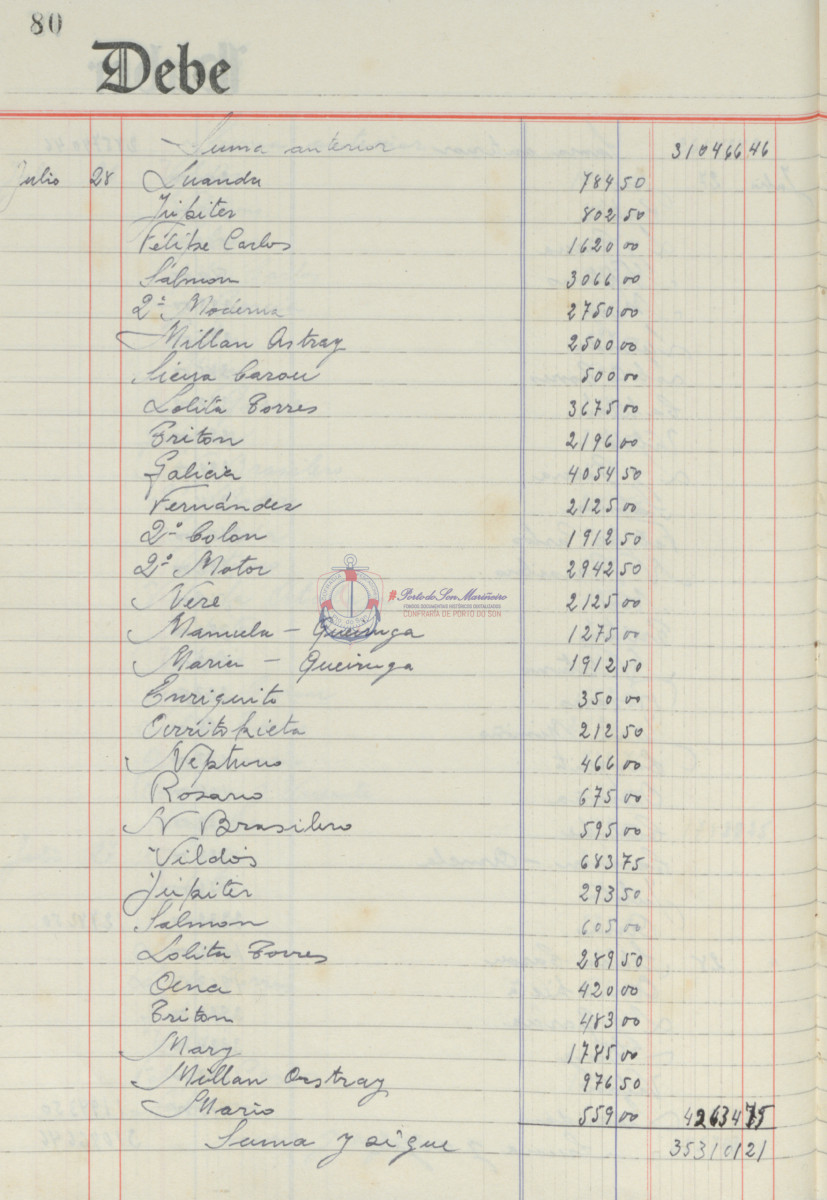 80
Debe
Suma anterior 310466 46
Julio 28 Luanda 784 50
Jupiter 802 50
Felipe Carlos 1620 00
Salmon 3066 00
2ª Moderna 2750 00
Millan Astray 2500 00
Siena Carou 500 00
Lolita Torres 3675 00
Triton 2196 00
Galicia 4054 50
Fernández 2125 00
2º Colon 1912 50
2º Motor 2942 50
Nere 2125 00
Manuela - Queiruga 1275 00
Maria - Queiruga 1912 50
Enriquito 350 00
212 50
Neptuno 466 00
Rosario 675 00
N Brasilero 595 00
Vildós 683 75
Jupiter 293 50
Salmon 605 00
Lolita Torres 289 50
Oena 420 00
Triton 483 00
Mary 1785 00
Millan Orstray 976 50
Mario 559 00 42634 75
Suma y sigue 353101 21
#PortodoSonMariñeiro
FONDOS DOCUMENTAIS HISTÓRICOS DIXITALIZADOS
CONFRARÍA DE PORTO DO SON